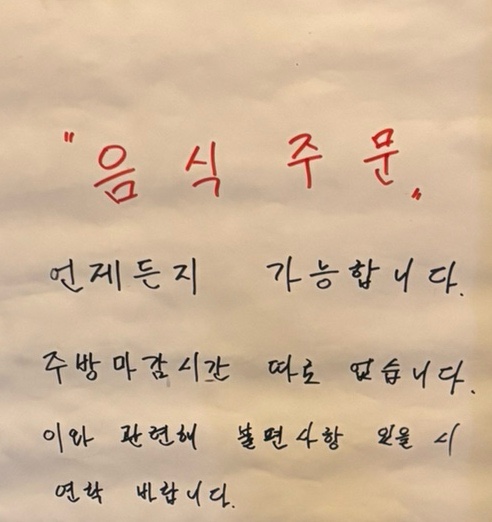 "음식 주문"
언제든지 가능합니다.
주방마감시간 따로 없습니다.
이와 관련해 불편사항 있을 시
연락 바랍니다.